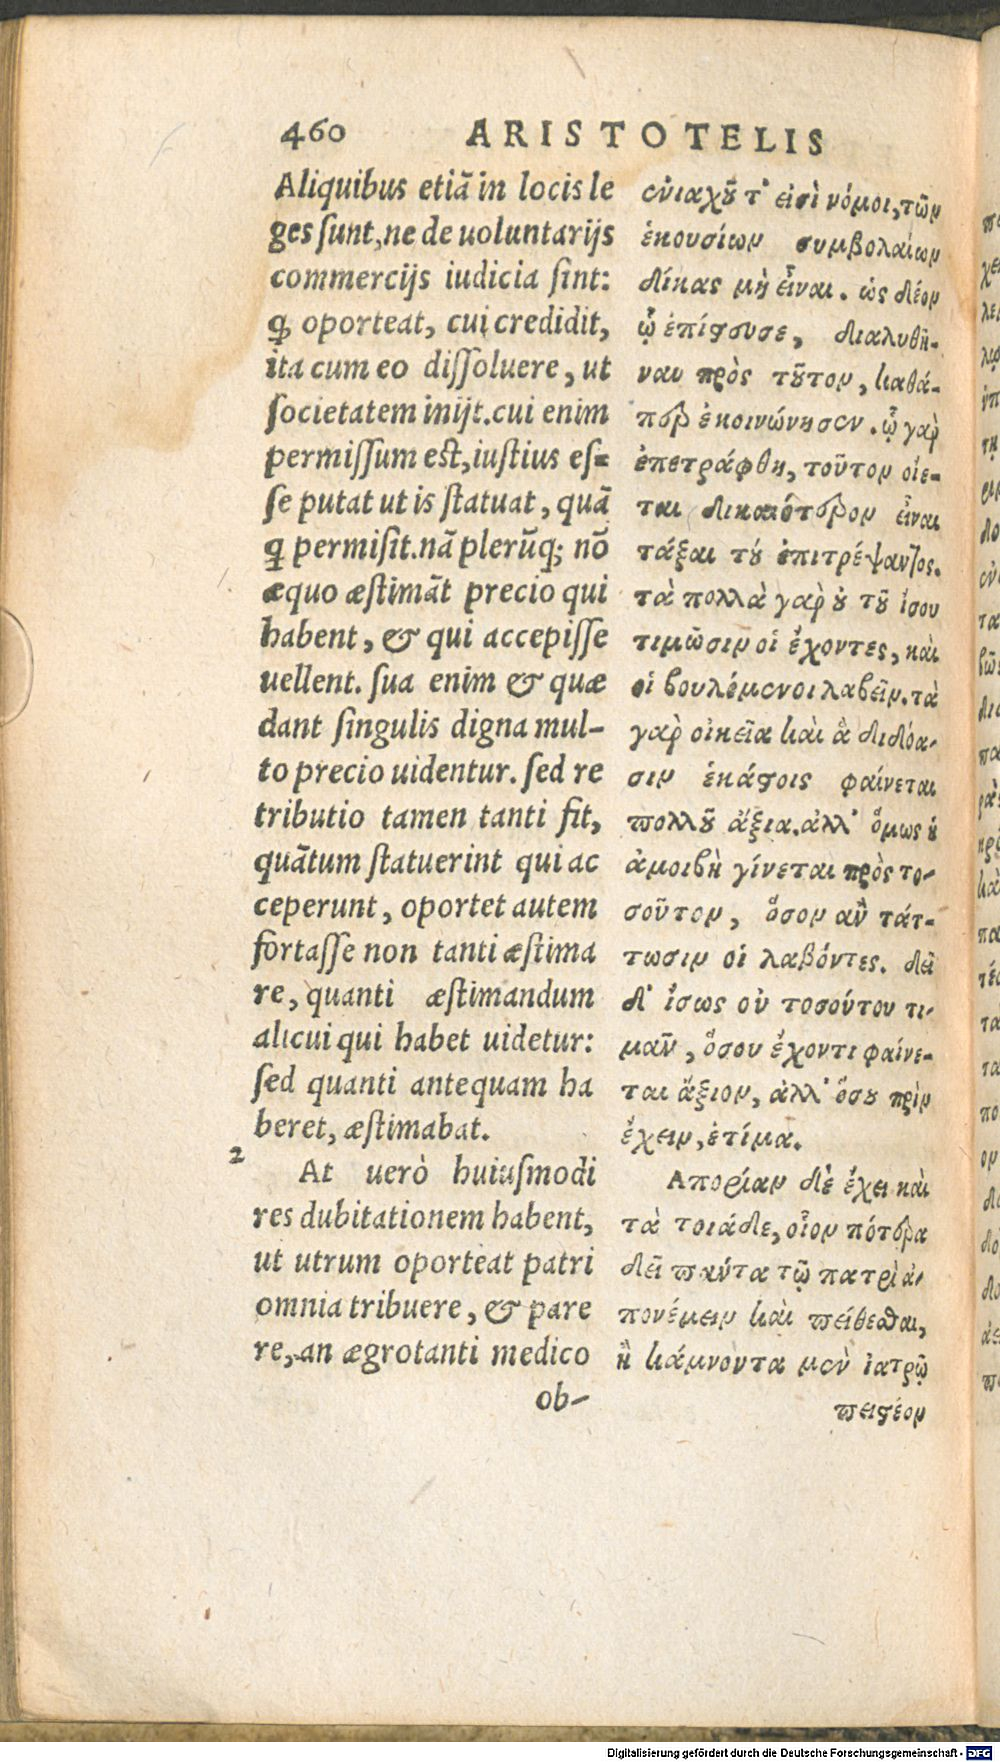 460 ARISTOTELIS
Aliquibus etiã in locis le
ges sunt, ne de uoluntarijs
commercijs iudicia sint:
ꝙ oporteat, cui credidit,
ita cum eo dissoluere, ut
societatem inijt. cui enim
permissum est, iustius es=
se putat ut is statuat, quã
ꝗ permisit. nã plerũꝗ; nõ
æquo æstimãt precio qui
habent, & qui accepisse
uellent. sua enim & quæ
dant singulis digna mul-
to precio uidentur. sed re
tributio tamen tanti fit,
quãtum statuerint qui ac
ceperunt, oportet autem
fortasse non tanti æstima
re, quanti æstimandum
alicui qui habet uidetur:
sed quanti antequam ha
beret, æstimabat.
2
At uerò huiusmodi
res dubitationem habent,
ut utrum oporteat patri
omnia tribuere, & pare
re, an ægrotanti medico
ob-
ἐνιαχȣ͂ τ' εἰσὶ νόμοι, τῶν
ἑκουσίων συμβολαίων
δίκας μὴ εἶναι. ὡς δέον
ᾧ ἐπίστευσε, διαλυθῆ-
ναι πρὸς τȣ͂τον, καθά-
περ ἐκοινώνησεν. ᾧ γὰρ
ἐπετράφθη, τοῦτον οἴε-
ται δικαιότερον εἶναι
τάξαι τȣ́ ἐπιτρέψαντος.
τὰ πολλὰ γὰρ ȣ̓ τȣ͂ ἴσου
τιμῶσιν οἱ ἔχοντες, καὶ
οἱ βουλόμενοι λαβεῖν. τὰ
γὰρ οἰκεῖα καὶ ἃ διδόα-
σιν ἑκάστοις φαίνεται
πολλȣ͂ ἄξια. ἀλλ' ὅμως ἡ
ἀμοιβὴ γίνεται πρὸς το-
σοῦτον, ὅσον ἂν τάτ-
τωσιν οἱ λαβόντες. δεῖ
δ' ἴσως οὐ τοσούτου τι-
μᾶν, ὅσου ἔχοντι φαίνε-
ται ἄξιον, ἀλλ' ὅσȣ πρὶν
ἔχειν, ἐτίμα.
Ἀπορίαν δὲ ἔχει καὶ
τὰ τοιάδε, οἷον πότερα
δεῖ πάντα τῷ πατρὶ ἀ-
πονέμειν καὶ πείθεσθαι,
ἢ κάμνοντα μὲν ἰατρῷ
πειστέον
Digitalisierung gefördert durch die Deutsche Forschungsgemeinschaft - DFG